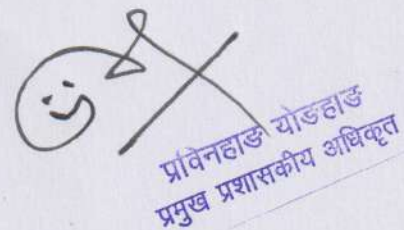 प्रविनहाङ योङहाङ
प्रमुख प्रशासकीय अधिकृत